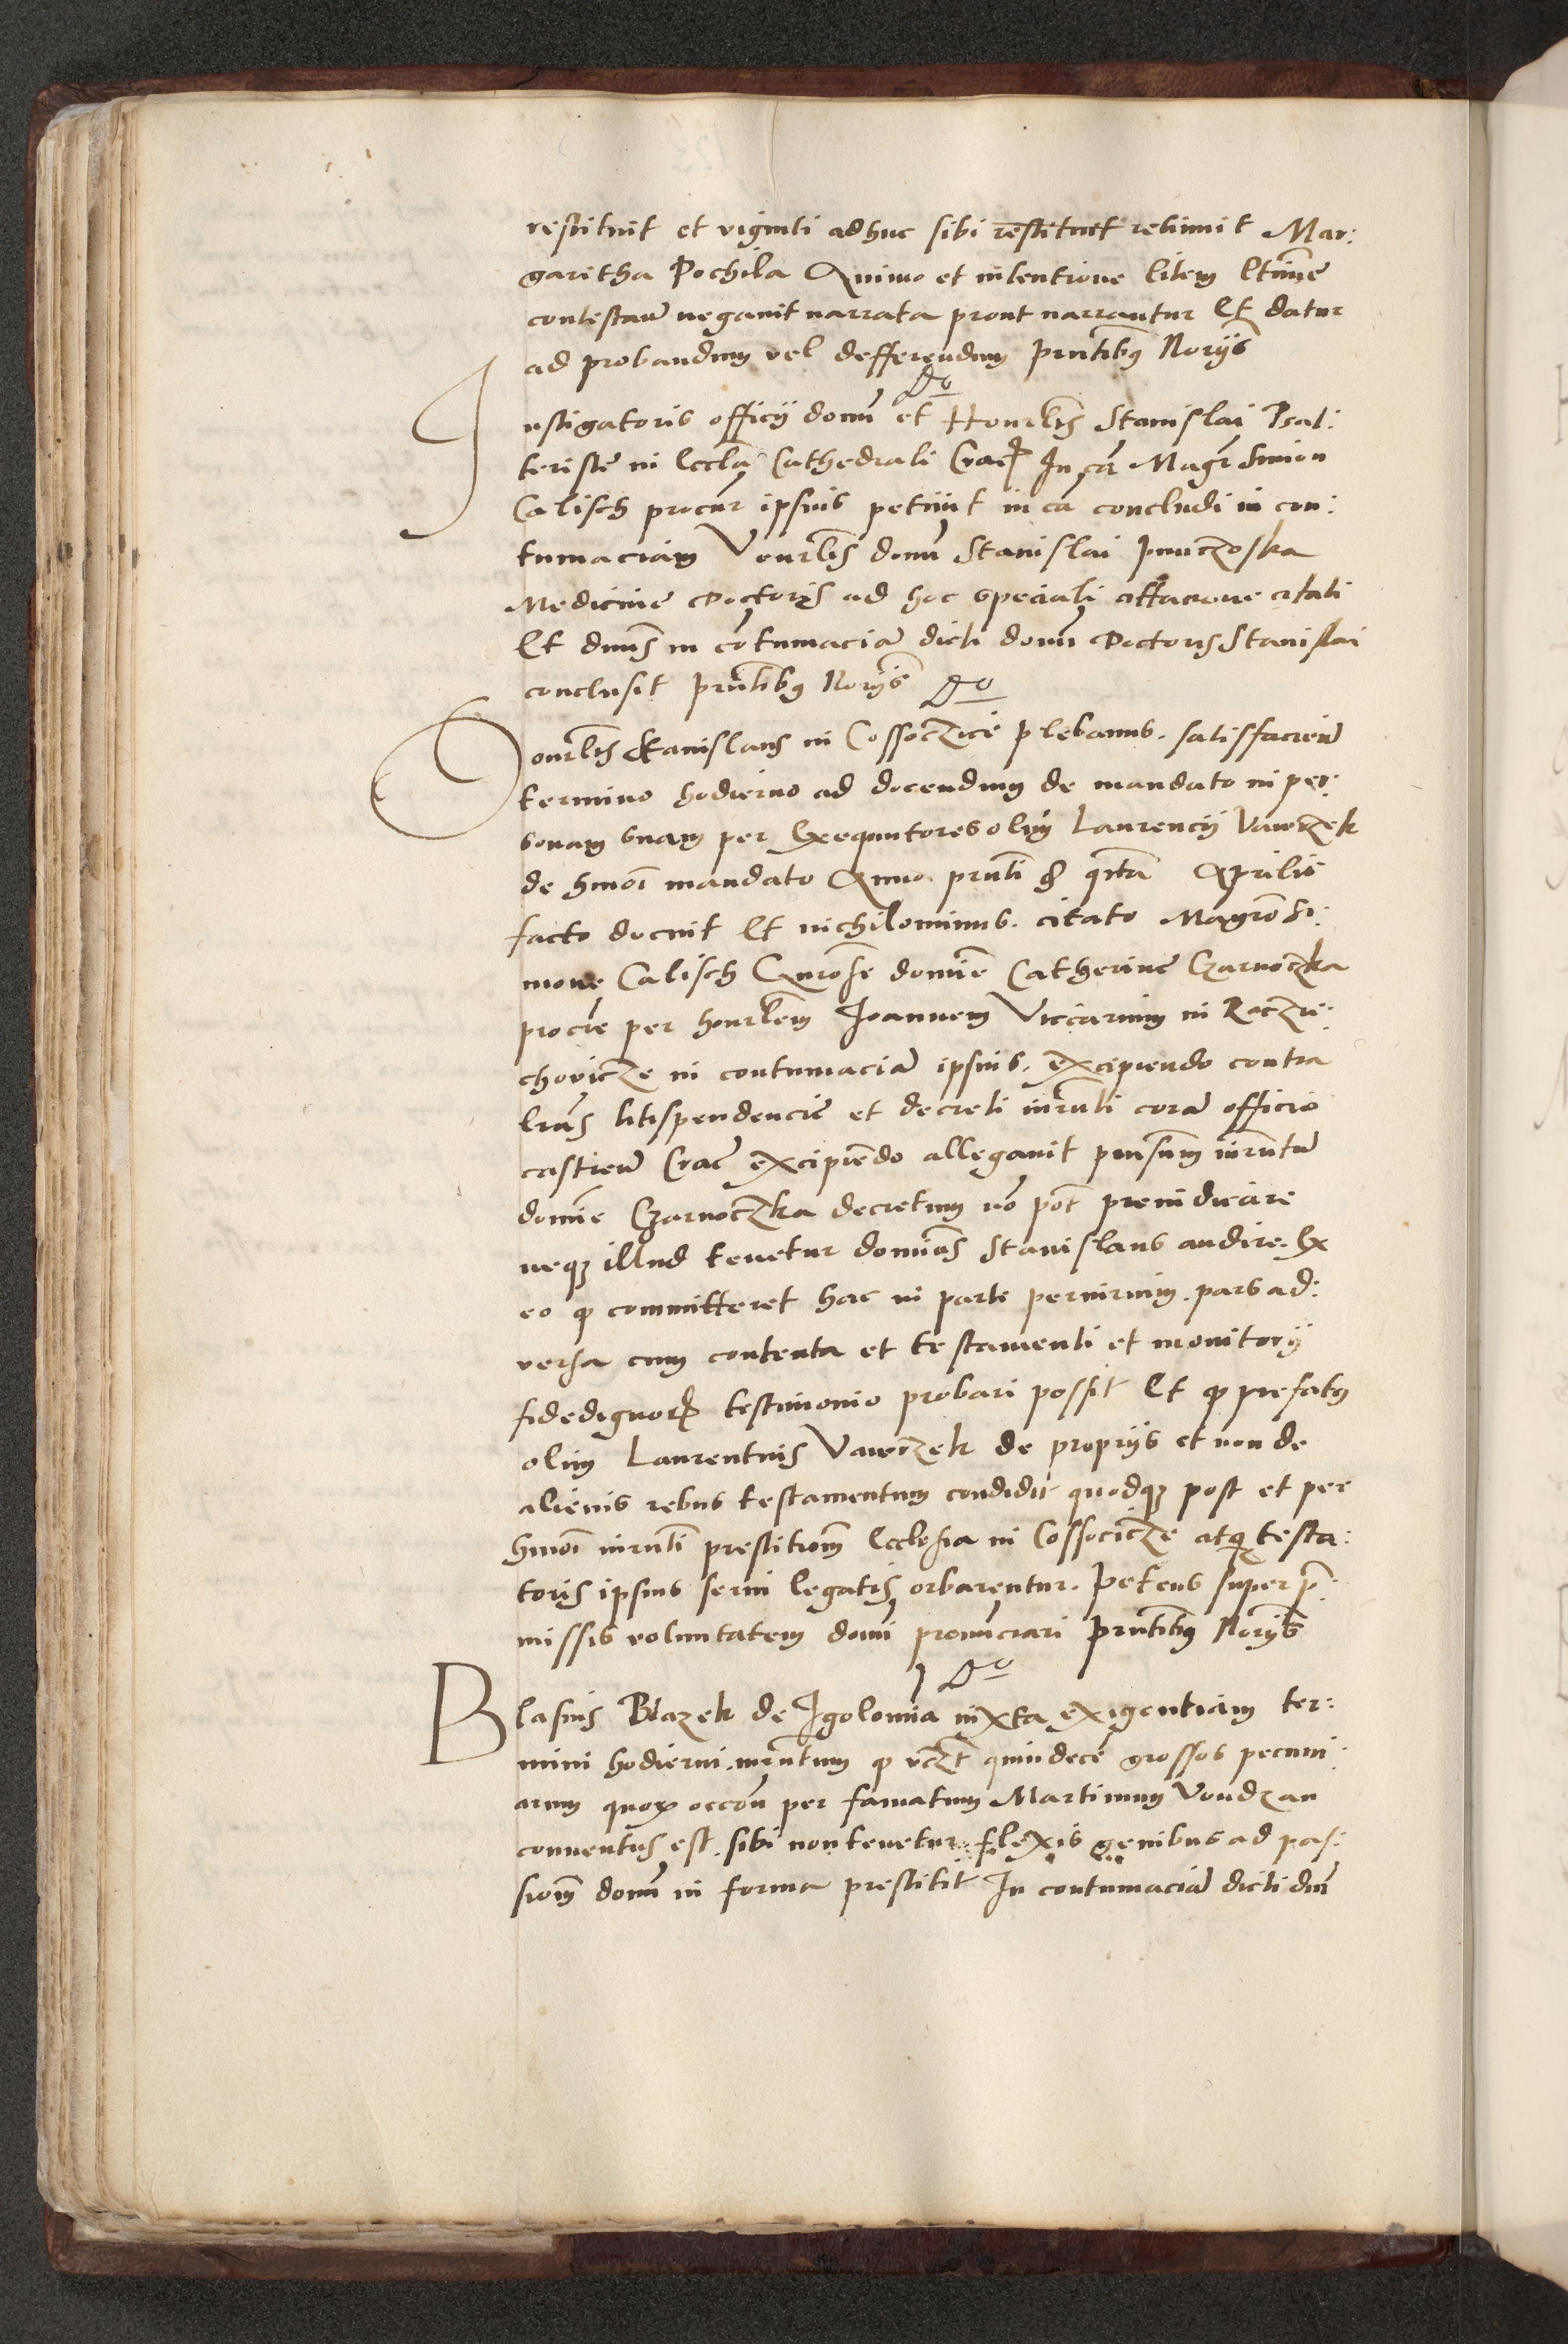 restituit et viginti adhuc sibi restituet retinuit Mar:
garitha Pochila Animo et intentione litem ltīme
contestan̄ negavit narrata prout narrantur Et datur
ad probandum vel defferendum prn̄tibus Norijs
Instigatoris officij domī et Honrlis Stanislai Psal:
teriste in Eccla Cathedrali Crac In ca Magr Simon
Calisch procur ipsius petiuit in ca concludi in con:
tumaciam Venrlis domī Stanislai
Medicine Doctoris ad hoc speciali cittacione citati
Et dnus in cōtumaciā dicti domī Doctoris Stanislai
conclusit prn̄tibus Norijs
Honrlis Stanislaus in Cossocicze plebanus. satisfaciendo
termino hodierno ad docendum de mandato in per:
sonam suam per Exequutores olim Laurencij Vawrzek
de hmōi mandato Anno prn̄ti qrta Aprilis
facto docuit Et nichilominus. citato Magrō Si:
mone Calisch Gnrōse domine Catherine Czarnoczka
procre per honrlem Joannem Viccarium in Raczie:
chovicze in contumaciā ipsius. excipiendo contra
lrās litispendencie et decreti iurn̄ti corā officio
castren̄ Crac excipiēdo allegavit pensum iurn̄tū
domīe Czarnoczka decretum nō pōt preiudicare
neque illud tenetur domīus Stanislaus audire. Ex
eo quod committeret hac in parte periurium. pars ad:
versa cum contenta et testamenti et monitorij
fidedignorum testimonio probari possit Et quod prefatus
olim Laurentius Vawrzek de proprijs et non de
alienis rebus testamentum condidit quodque post et per
hmōi iurn̄ti prestitiom̄ Ecclesia in Cossocicze atque testa:
toris ipsius servi legatis orbarentur. Petens super p̄:
missis voluntatem domī pronūciari prn̄tibus Norijs
Blasius Blazek de Igolomia iuxta exigentiam ter:
mini hodierni. iurn̄tum quod vczt quindecē grossos pecuni:
arum quorum occōn per famatum Martinum Vondzan
conventus est. sibi non tenetur. flexis genibus ad pas:
siom̄ domī in forma prestitit In contumaciā dicti dnī